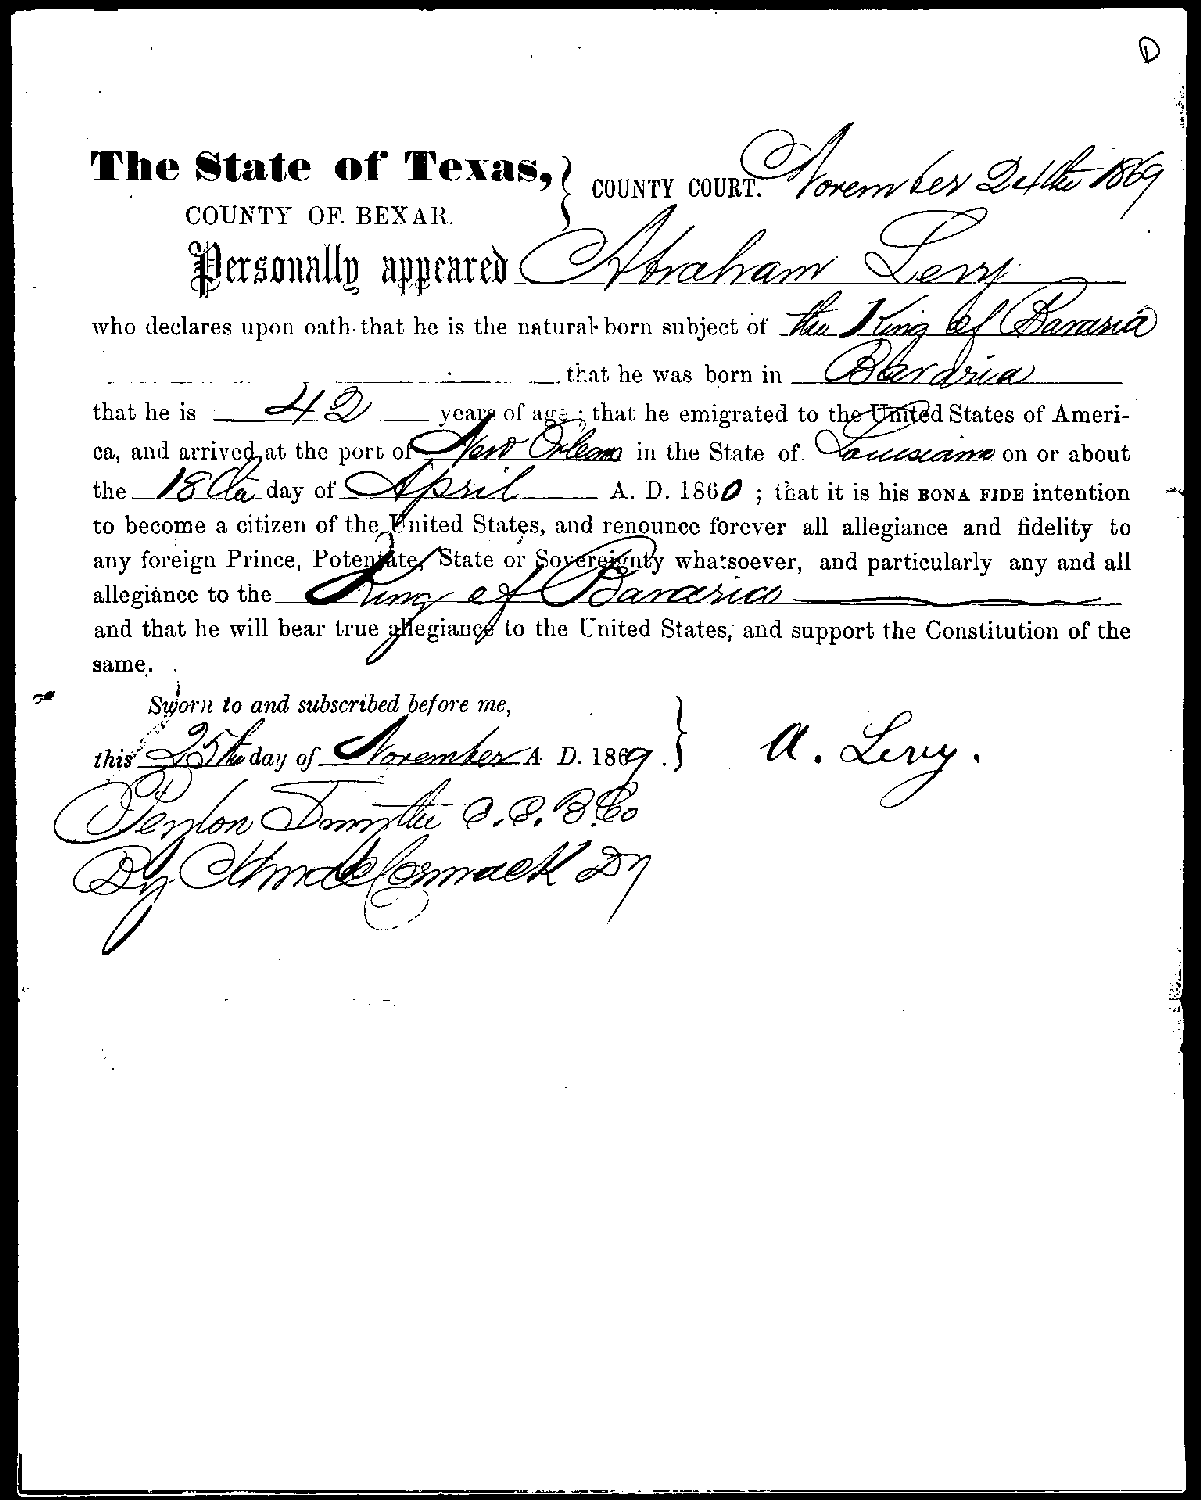 D
The State of Texas, } COUNTY COURT. November 24th 1869
COUNTY OF BEXAR.
Personally appeared Abraham Levy
who declares upon oath that he is the natural-born subject of the King of Bavaria
that he was born in Bavaria
that he is 42 years of age; that he emigrated to the United States of Ameri-
ca, and arrived at the port of New Orleans in the State of Louisiana on or about
the 18th day of April A. D. 1860 ; that it is his BONA FIDE intention
to become a citizen of the United States, and renounce forever all allegiance and fidelity to
any foreign Prince, Potentate, State or Sovereignty whatsoever, and particularly any and all
allegiance to the King of Bavaria
and that he will bear true allegiance to the United States, and support the Constitution of the
same.
Sworn to and subscribed before me,
this 25th day of November A. D. 1869. } A. Levy.
Peyton Smythe C. C. B. Co
By McCormack Dy